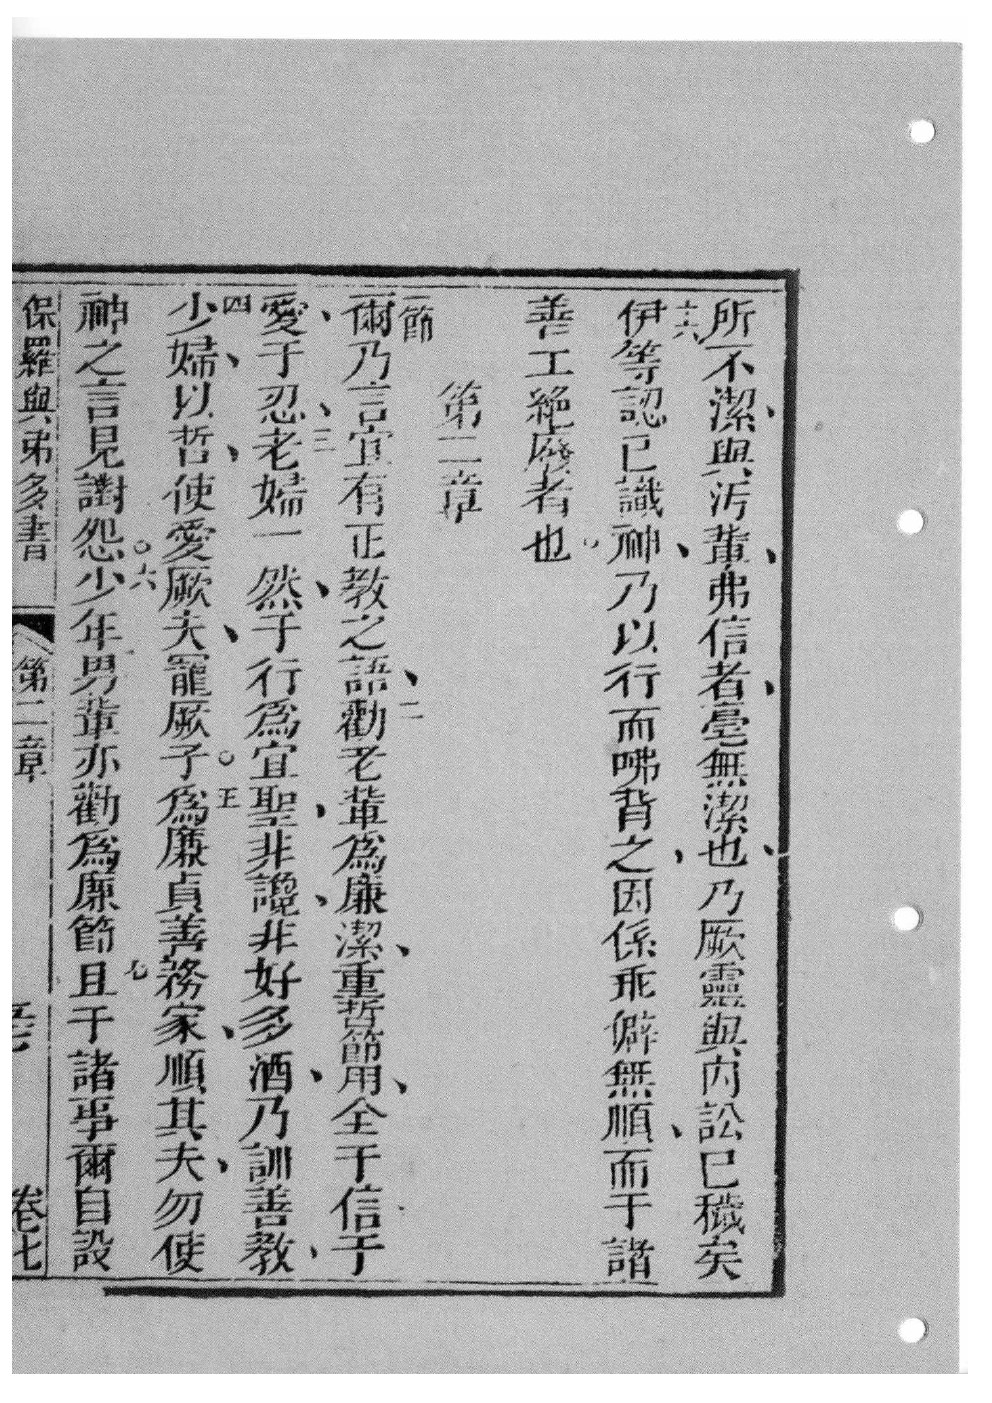 所不潔與污輩、弗信者、毫無潔也、乃厥靈與內訟已穢矣
十六伊等認已識神、乃以行而咈背之、因係乖僻無順、而于諸
善工絕廢者也。
第二章
一節爾乃言宜有正教之語、二勸老輩爲廉潔、重哲節用、全于信于
愛、于忍、三老婦一然、于行爲宜聖、非讒、非好多酒、乃訓善教、
四少婦、以哲、使愛厥夫、寵厥子。五爲廉貞善務家、順其夫、勿使
神之言見讟怨。六少年男輩亦勸爲廉節七且于諸事爾自設
保羅與弟多書 第二章 卷七